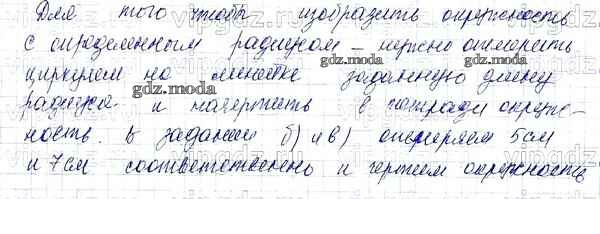 Для того чтобы изобразить окружность
с определенным радиусом – нужно отмерить
циркулем на линейке заданную длину
радиуса и начертить в тетради окруж-
ность. В задании б) и в) отмеряем 5 см
и 7 см соответственно и чертим окружность
gdz.moda
gdz.moda
gdz.moda
gdz.moda
vipgdz.com